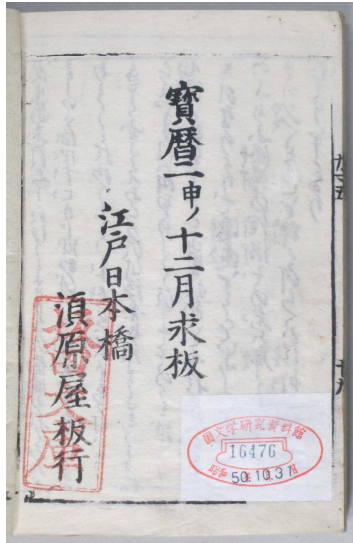 寳暦二申ノ十二月求板
江戸日本橋
須原屋板行
国文学研究資料館
16476
昭和50.10.3月